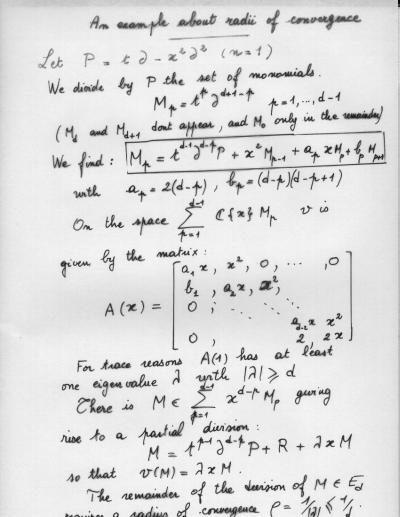 An example about radii of convergence
Let P = t ∂ - x² ∂² (n=1)
We divide by P the set of monomials.
M_p = t^p ∂^{d+1-p} p=1,...,d-1
(M_d and M_{d+1} dont appear, and M_0 only in the remainder)
We find : M_p = t^{p-1} ∂^{d-p} P + x² M_{p-1} + a_p x M_p + b_p M_{p+1}
with a_p = 2(d-p) , b_p = (d-p)(d-p+1)
On the space ∑_{p=1}^{d-1} ℂ{x} M_p v is
given by the matrix :
A(x) = [ a_1 x , x² , 0 , ... , 0
b_1 , a_2 x , x² ,
0 ; ⋱ ⋱ ⋱
a_{d-2} x x²
0 , 2 , 2x ]
For trace reasons A(1) has at least
one eigenvalue λ with |λ| ⩾ d
There is M ∈ ∑_{p=1}^{d-1} x^{d-p} M_p giving
rise to a partial division :
M = t^{p-1} ∂^{d-p} P + R + λ x M
so that v(M) = λ x M .
The remainder of the division of M ∈ E_d
requires a radius of convergence ρ = 1/|λ| ⩽ 1/d